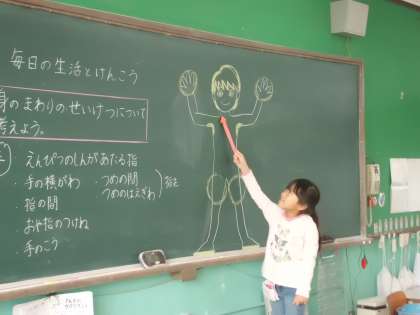 毎日の生活とけんこう
身のまわりのせいけつについて
考えよう。
えんぴつのしんがあたる指
・手の横がわ ・つめの間
つめのはえぎわ
・指の間
・おや指のつけね
・手のこう